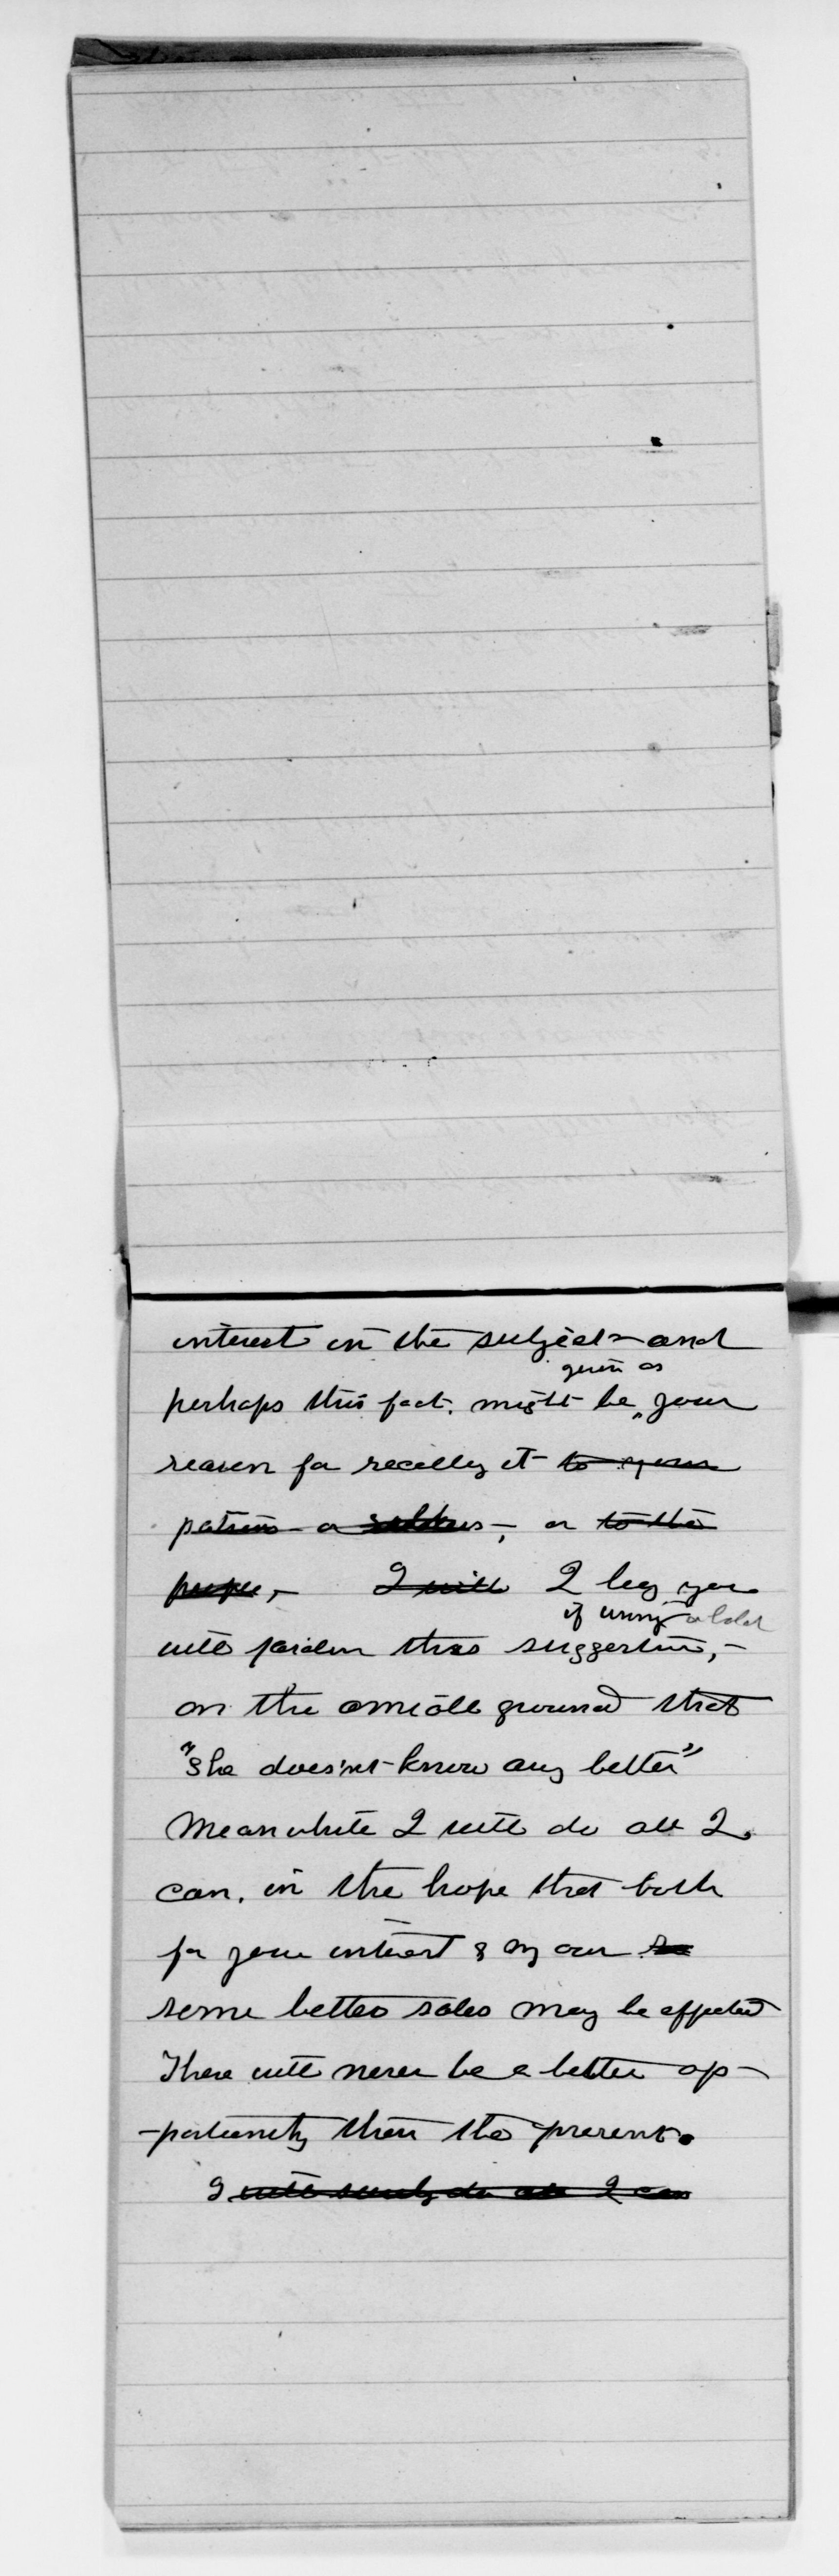 interest in the subject - and
given as
perhaps this fact. might be your
reason for recalling it to your
patrons - or or to the
people, - I will I beg you
if wrong
will pardon this suggestion, -
on the amiable ground that
"she does'nt know any better"
Meanwhile I will do all I
can, in the hope that both
for your interest & my own so
some better sales may be effected
There will never be a better op-
-portunity than the present.
I will surely do all I can